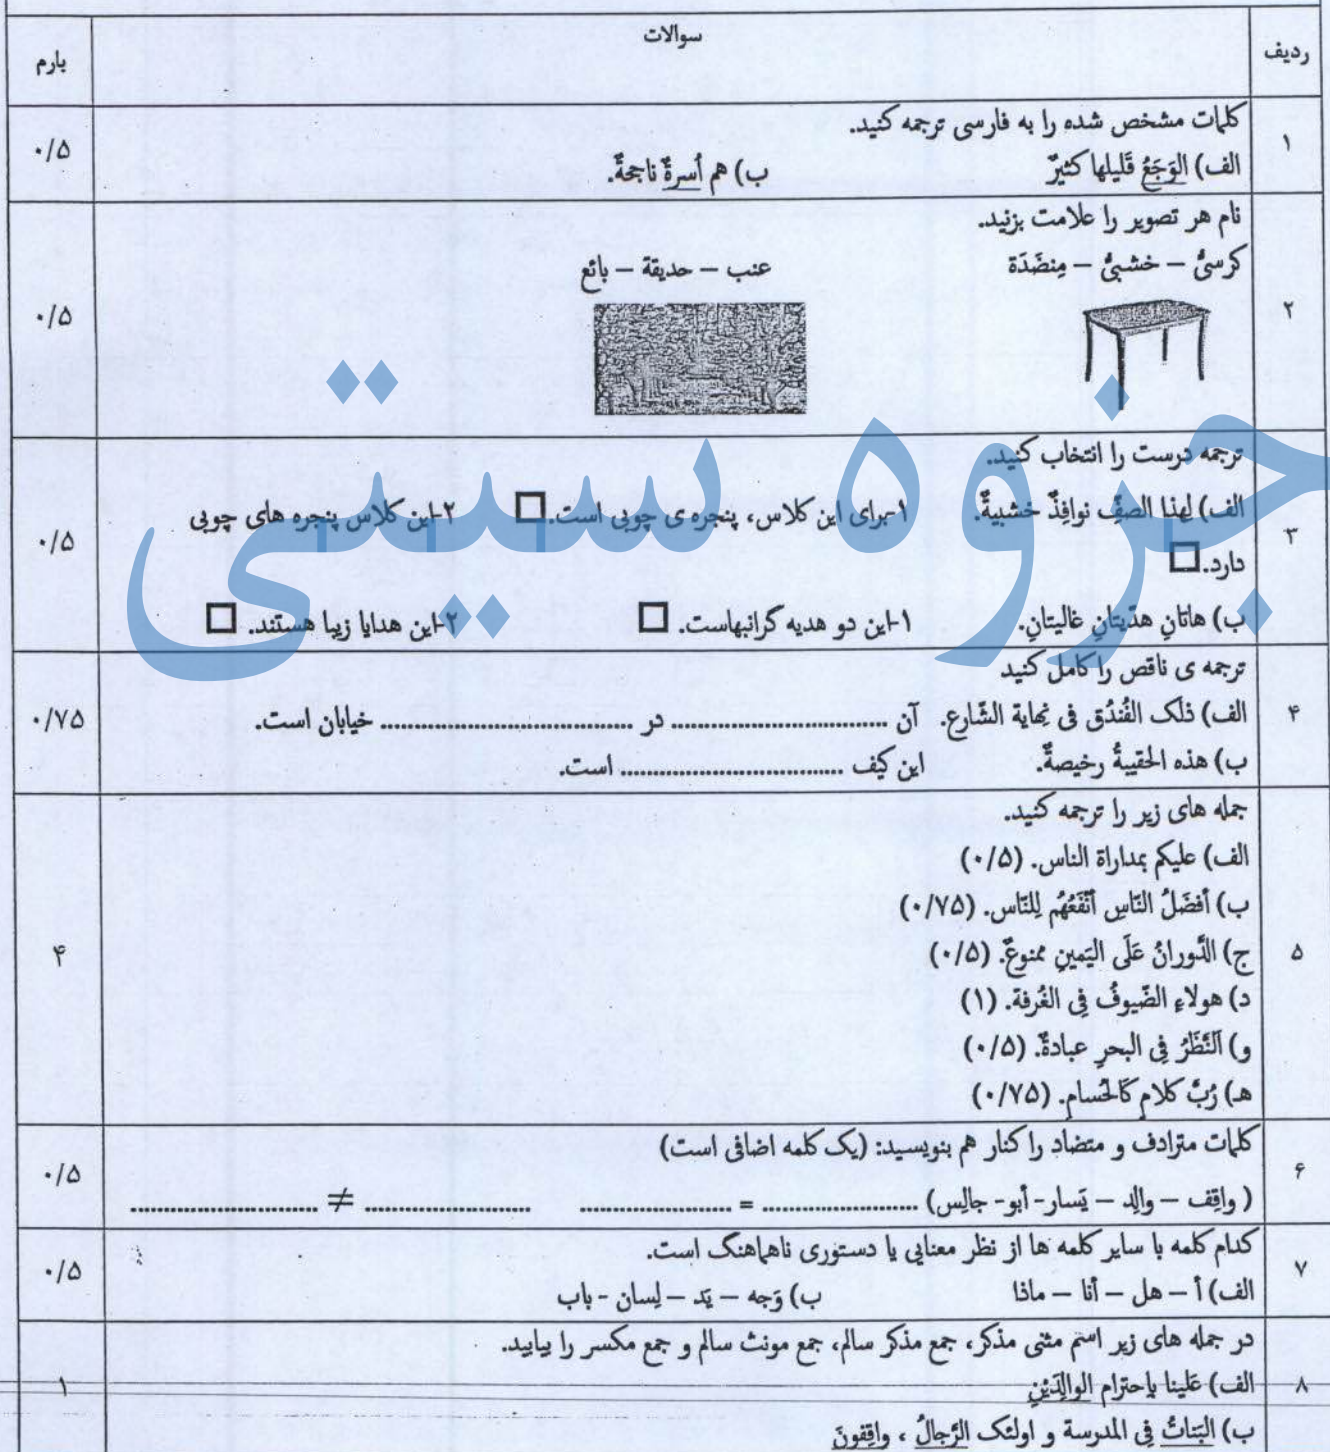 ردیف سوالات بارم
۱ کلمات مشخص شده را به فارسی ترجمه کنید.
الف) الوَجَعُ قَلیلها کثیرٌ ب) هم اُسرةٌ ناجحةٌ. ۰/۵
نام هر تصویر را علامت بزنید.
کرسیٌّ – خشبیٌّ – مِنضَدَة عنب – حدیقة – بائع
۲ ۰/۵
ترجمه درست را انتخاب کنید.
الف) لهذا الصفِّ نوافِذٌ خشبیةٌ. ۱-برای این کلاس، پنجره ی چوبی است. □ ۲-این کلاس پنجره های چوبی
۳ دارد. □ ۰/۵
ب) هاتانِ هدّیتانِ غالیتانِ. ۱-این دو هدیه گرانبهاست. □ ۲-این هدایا زیبا هستند. □
ترجمه ی ناقص را کامل کنید
۴ الف) ذلک الفُندُق فی نهایة الشّارع. آن .................... در .................... خیابان است. ۰/۷۵
ب) هذه الحقیبةُ رخیصةٌ. این کیف .................... است.
جمله های زیر را ترجمه کنید.
الف) علیکم بمداراة الناس. (۰/۵)
ب) أفضَلُ النّاسِ أنْفَعُهُم لِلنّاس. (۰/۷۵)
۵ ج) الدَّورانُ عَلَی الیَمینِ ممنوعٌ. (۰/۵) ۴
د) هولاءِ الضّیوفُ فِی الغُرفة. (۱)
و) اَلنَّظَرُ فِی البحرِ عبادةٌ. (۰/۵)
هـ) رُبَّ کلام کَالحُسام. (۰/۷۵)
۶ کلمات مترادف و متضاد را کنار هم بنویسید: (یک کلمه اضافی است) ۰/۵
( واقِف – والِد – یَسار- أبو- جالِس) .................... = .................... .................... ≠ ....................
۷ کدام کلمه با سایر کلمه ها از نظر معنایی یا دستوری ناهماهنگ است. ۰/۵
الف) أ – هل – أنا – ماذا ب) وَجه – یَد – لِسان - باب
در جمله های زیر اسم مثنی مذکر، جمع مذکر سالم، جمع مونث سالم و جمع مکسر را بیابید.
۸ الف) عَلینا بِاحترام الوالِدَیْنِ ۱
ب) البَناتُ فِی المدرسة و اولئک الرِّجالُ ، واقِفونَ
جزوه سیتی